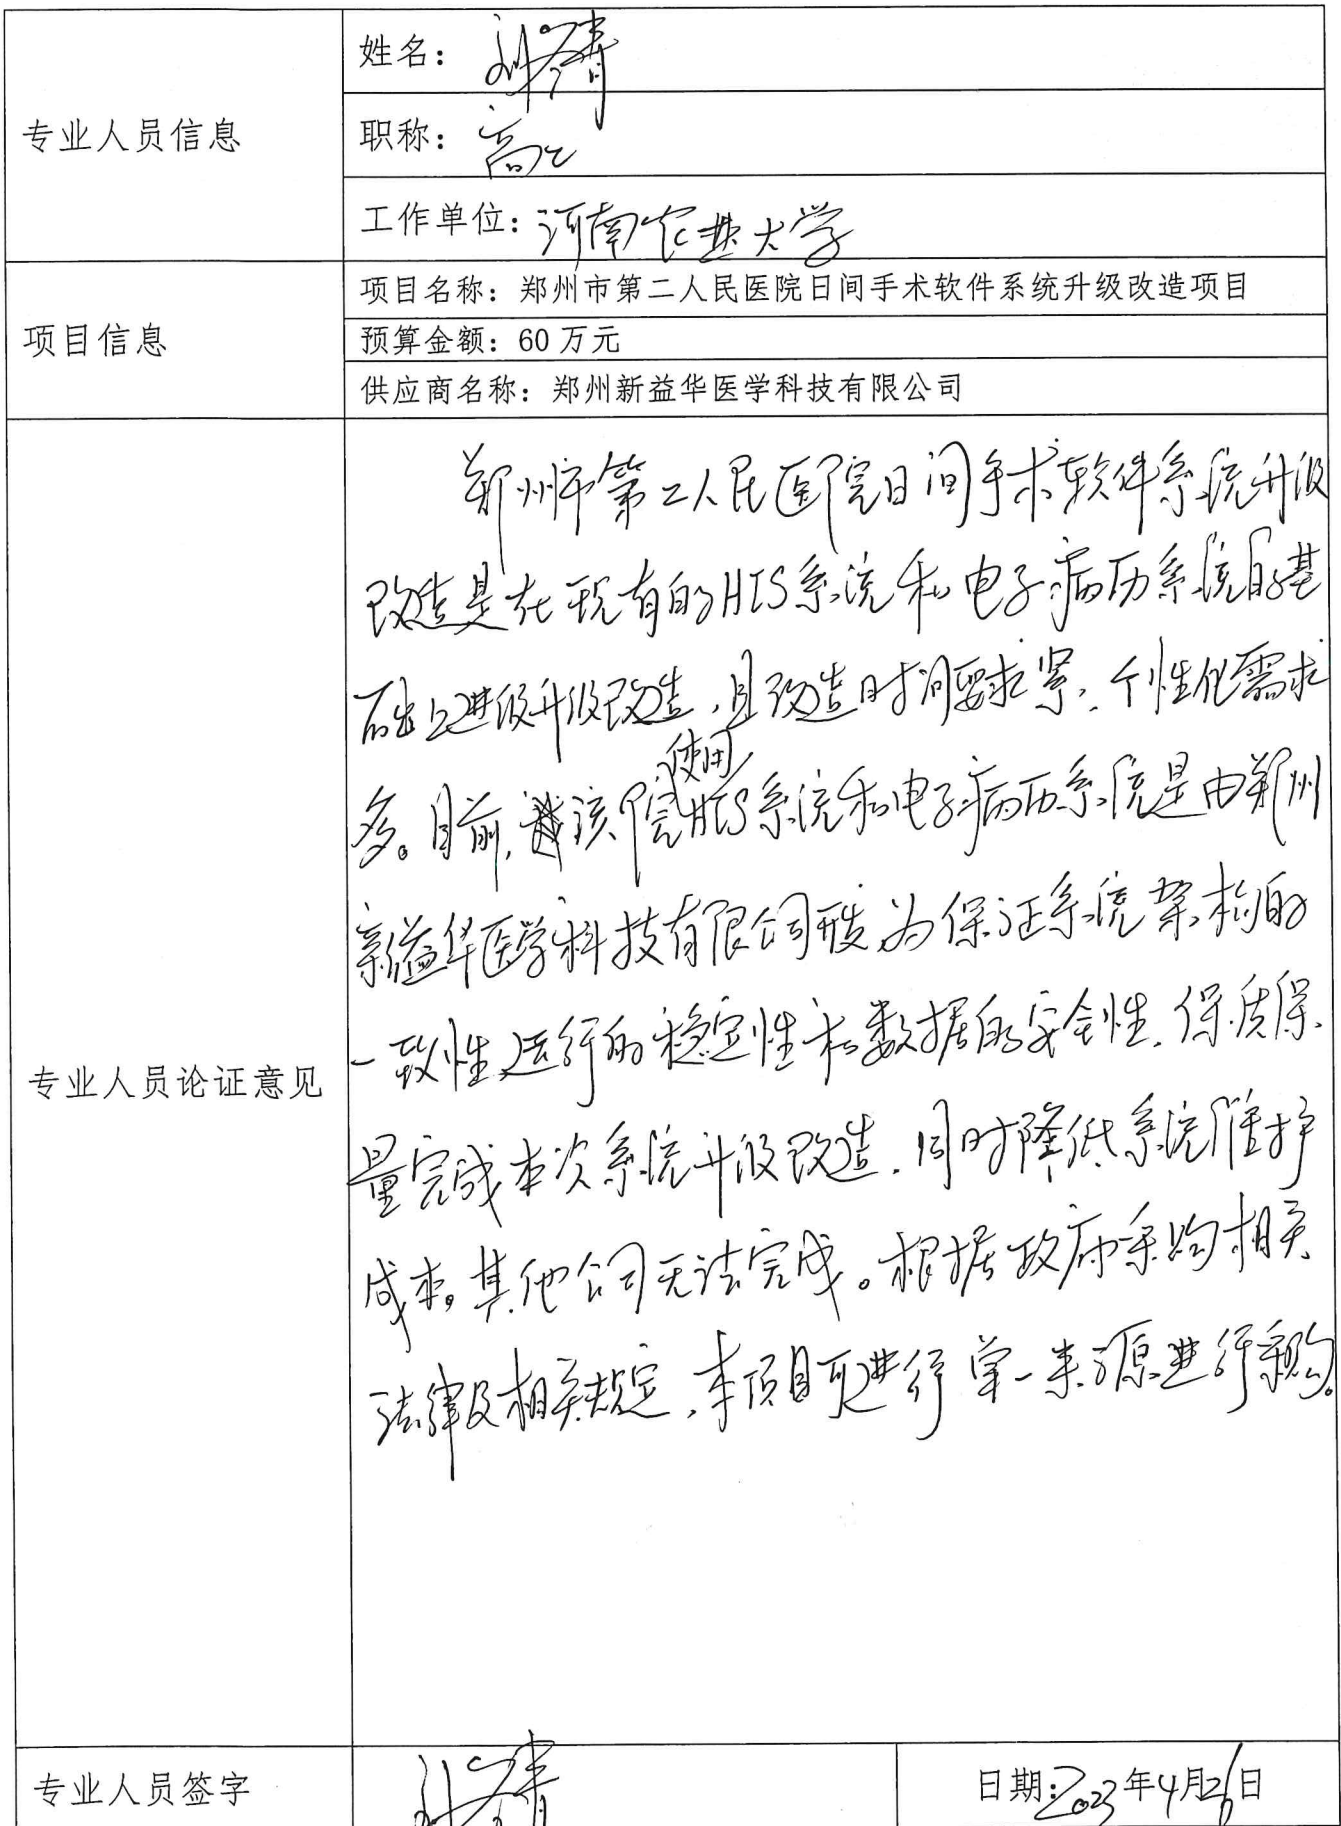 专业人员信息
姓名：
职称：高工
工作单位：河南农业大学
项目信息
项目名称：郑州市第二人民医院日间手术软件系统升级改造项目
预算金额：60万元
供应商名称：郑州新益华医学科技有限公司
专业人员论证意见
郑州市第二人民医院日间手术软件系统升级
改造是在现有的HIS系统和电子病历系统的基
础上进级升级改造，且改造时间要求紧，个性化需求
多。目前，该院使用HIS系统和电子病历系统是由郑州
新益华医学科技有限公司开发，为保证系统架构的
一致性、运行的稳定性和数据的安全性，保质保
量完成本次系统升级改造，同时降低系统维护
成本。其他公司无法完成。根据政府采购相关
法律及相关规定，本项目可进行单一来源进行采购。
专业人员签字
日期：2023年4月26日